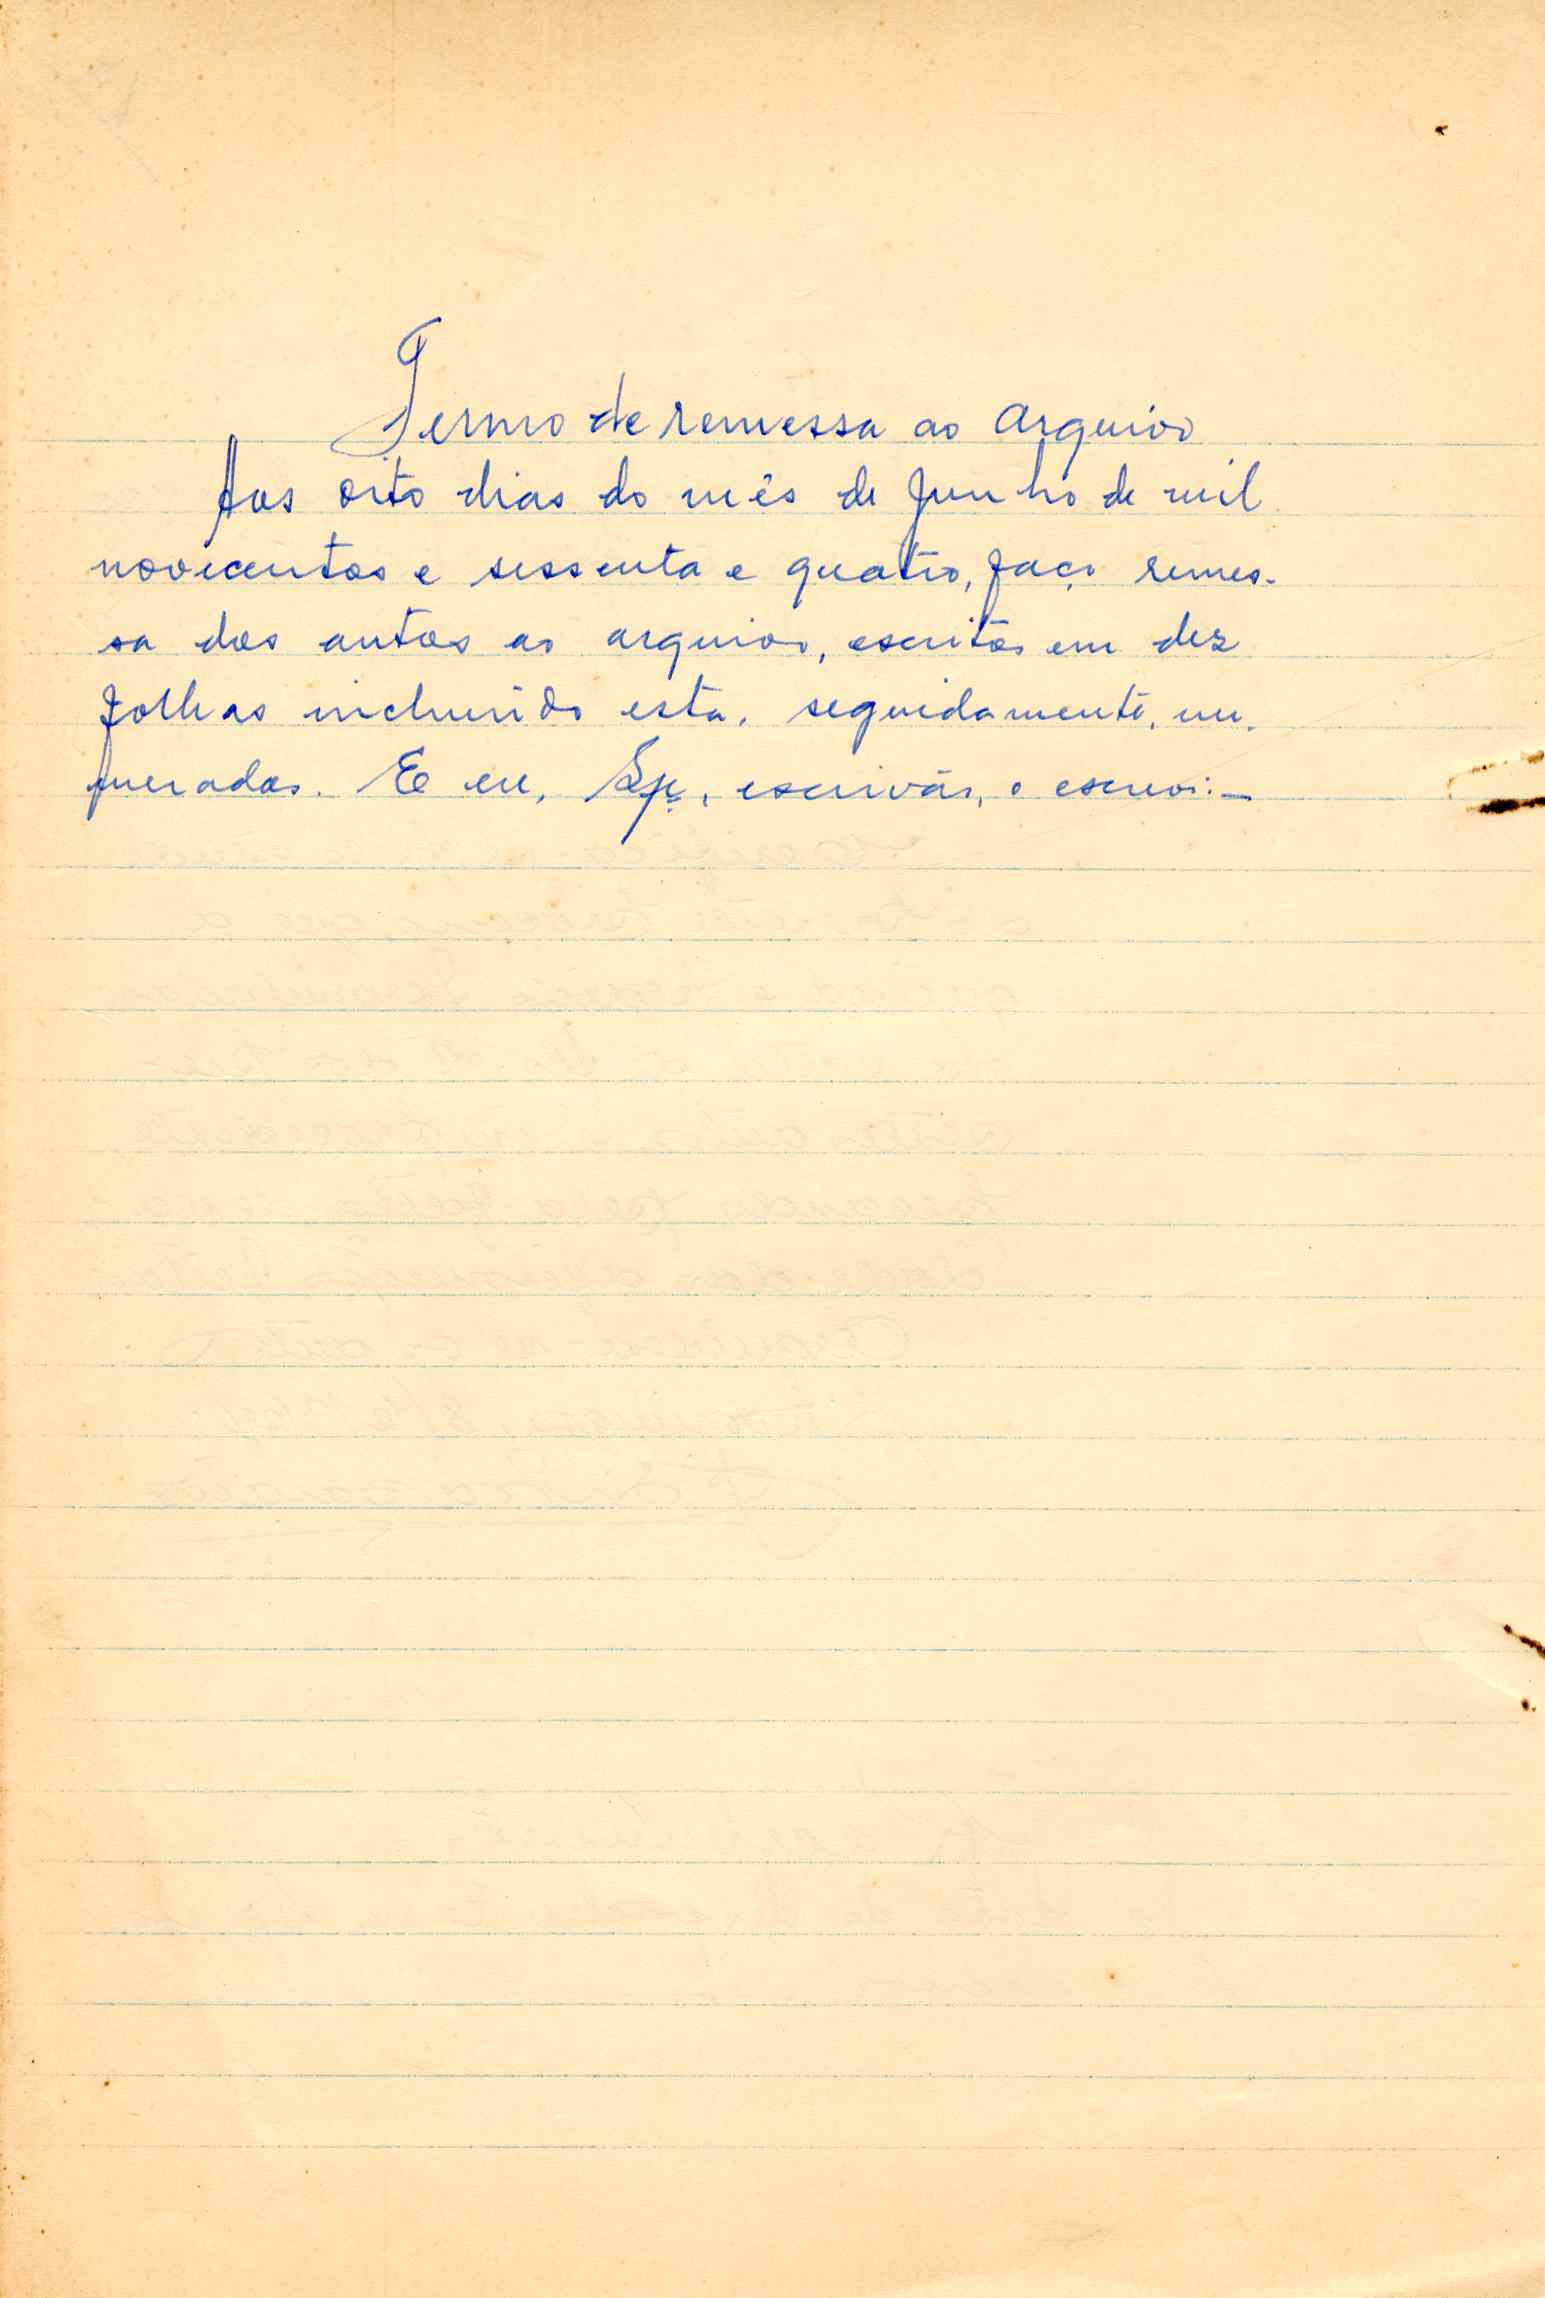 Termo de remessa ao arquivo
Aos oito dias do mês de Junho de mil
novecentos e sessenta e quatro, faço remes-
sa dos autos ao arquivo, escritos em dez
folhas incluindo esta, seguidamente, nu-
meradas. E eu, escrivão, o escrevi:-